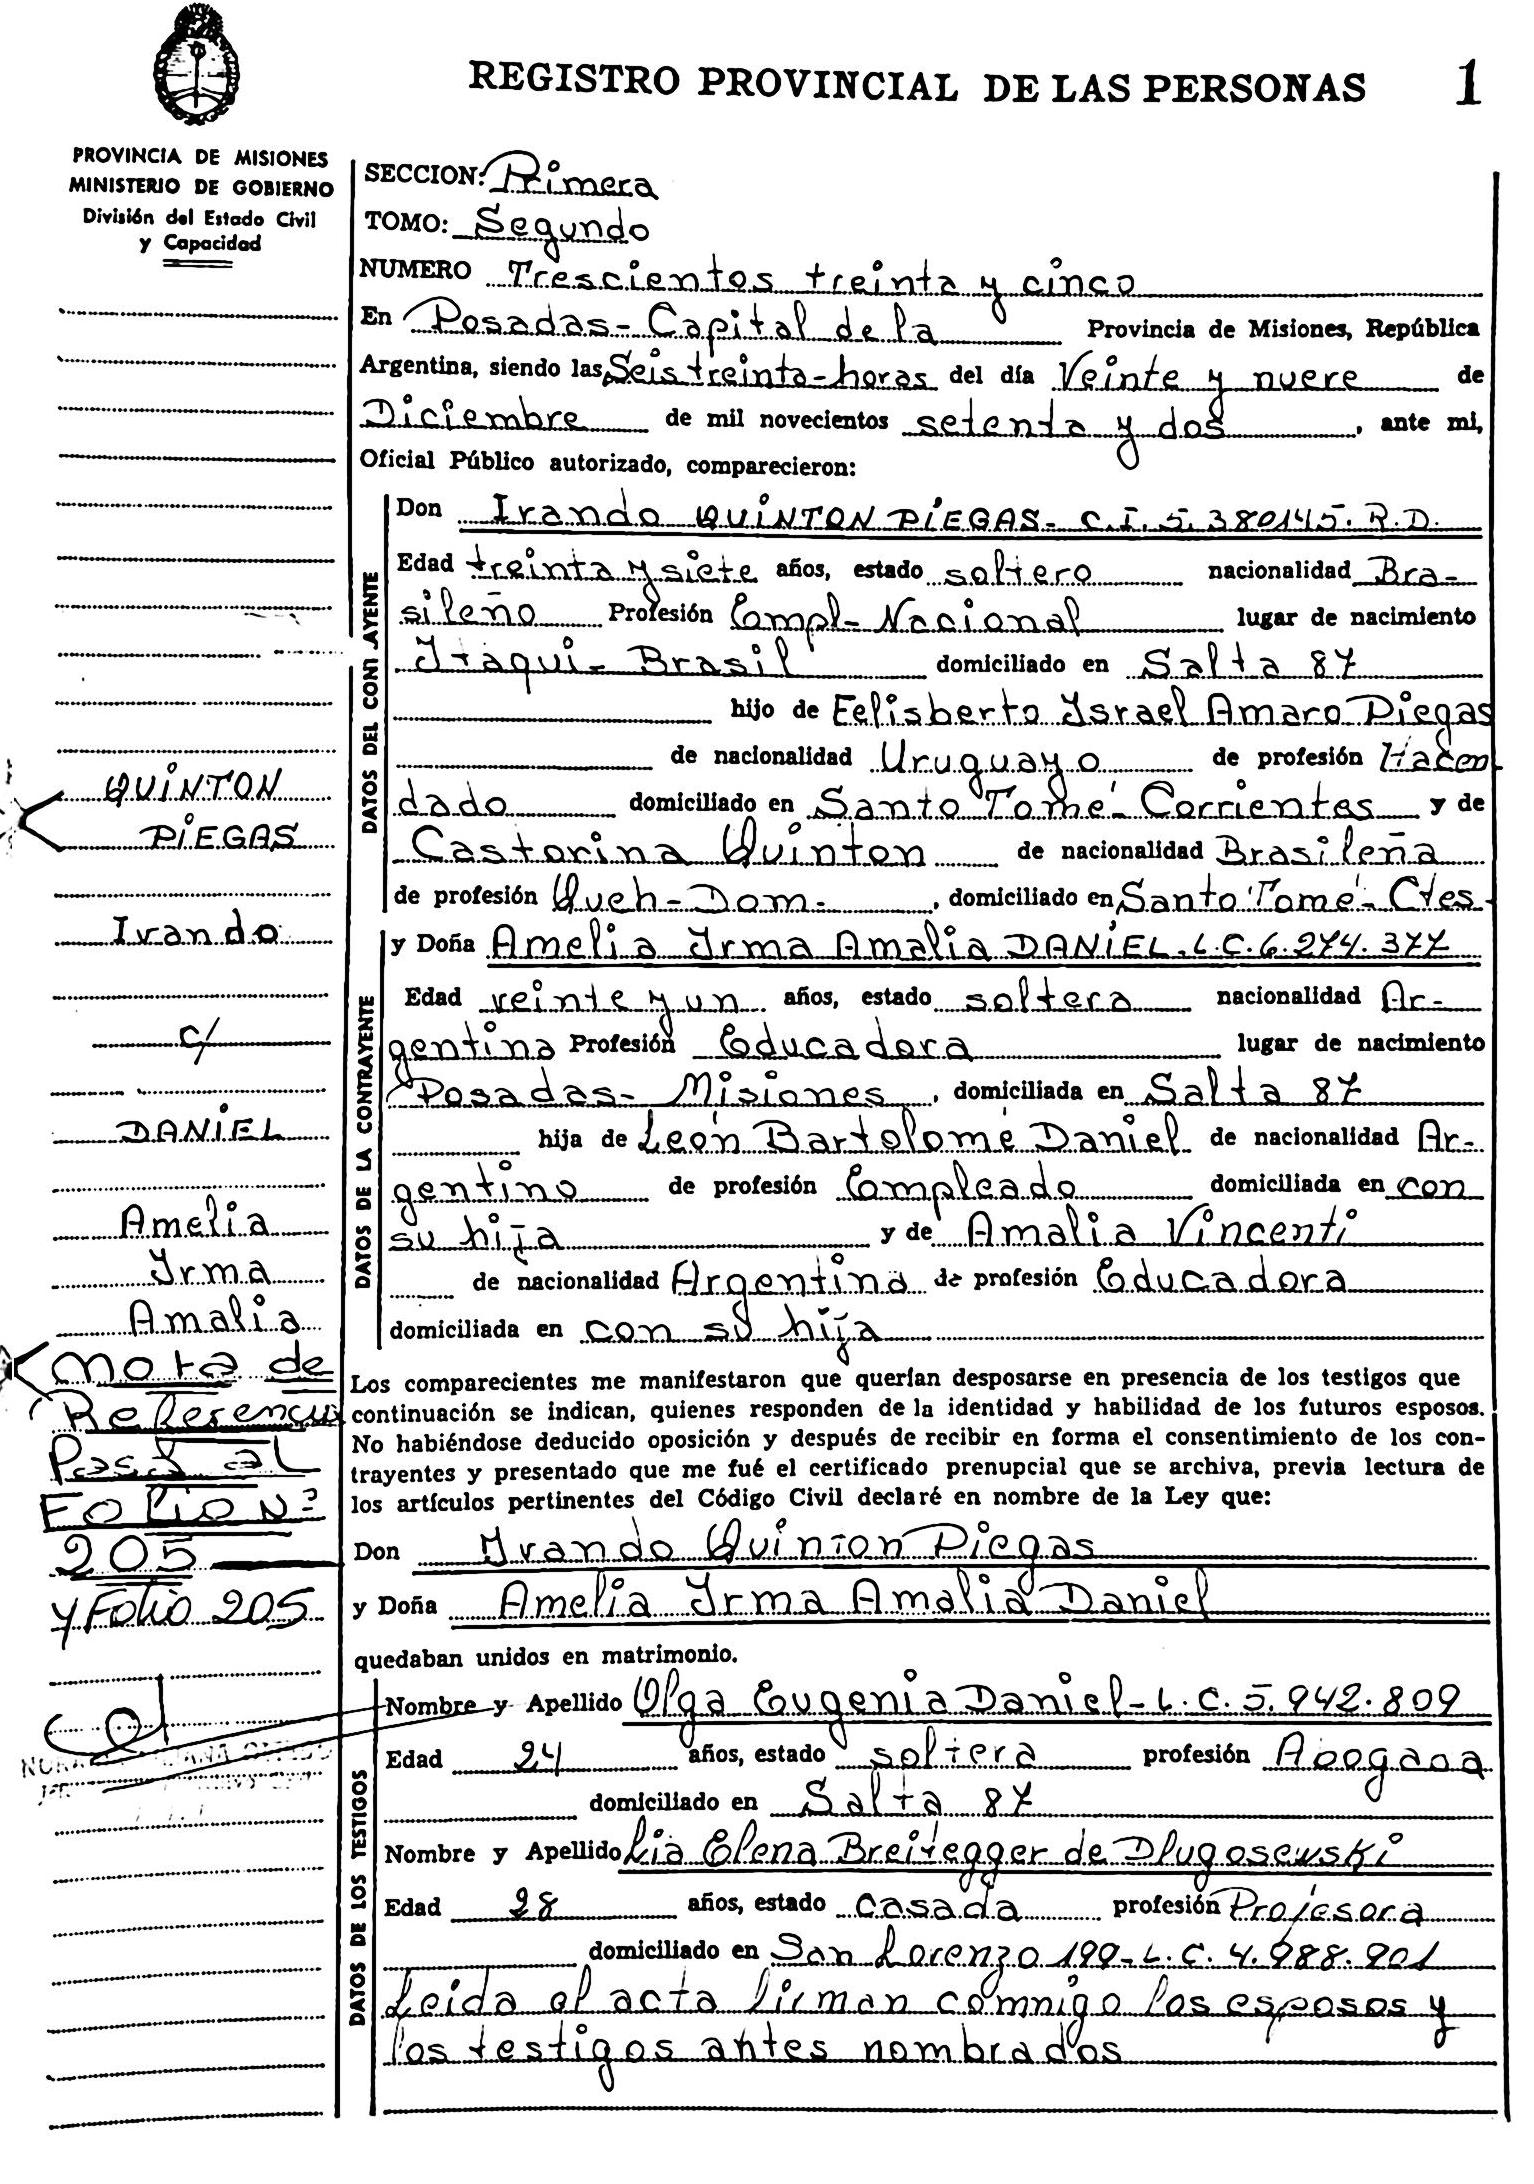 REGISTRO PROVINCIAL DE LAS PERSONAS 1
PROVINCIA DE MISIONES
MINISTERIO DE GOBIERNO
División del Estado Civil
y Capacidad
SECCION: Primera
TOMO: Segundo
NUMERO Trescientos treinta y cinco
En Posadas - Capital de la Provincia de Misiones, República
Argentina, siendo las Seis treinta - horas del día Veinte y nueve de
Diciembre de mil novecientos setenta y dos, ante mi,
Oficial Público autorizado, comparecieron:
DATOS DEL CONT AYENTE
Don Ivando QUINTON PIEGAS - C.I. 5.380145. R.D.
Edad treinta y siete años, estado soltero nacionalidad Bra-
sileño Profesión Empl - Nacional lugar de nacimiento
Itaqui - Brasil domiciliado en Salta 87
hijo de Felisberto Israel Amaro Piegas
de nacionalidad Uruguayo de profesión Hacen
dado domiciliado en Santo Tomé - Corrientes y de
Castorina Quinton de nacionalidad Brasileña
de profesión Queh - Dom -, domiciliado en Santo Tomé - Ctes -
DATOS DE LA CONTRAYENTE
y Doña Amelia Irma Amalia DANIEL. L.C. 6.274.377
Edad veinte y un años, estado soltera nacionalidad Ar-
gentina Profesión Educadora lugar de nacimiento
Posadas - Misiones, domiciliada en Salta 87
hija de León Bartolomé Daniel de nacionalidad Ar-
gentino de profesión Empleado domiciliada en con
su hija y de Amalia Vincenti
de nacionalidad Argentina de profesión Educadora
domiciliada en con su hija
Los comparecientes me manifestaron que querían desposarse en presencia de los testigos que
continuación se indican, quienes responden de la identidad y habilidad de los futuros esposos.
No habiéndose deducido oposición y después de recibir en forma el consentimiento de los con-
trayentes y presentado que me fué el certificado prenupcial que se archiva, previa lectura de
los artículos pertinentes del Código Civil declaré en nombre de la Ley que:
Don Ivando Quinton Piegas
y Doña Amelia Irma Amalia Daniel
quedaban unidos en matrimonio.
DATOS DE LOS TESTIGOS
Nombre y Apellido Olga Eugenia Daniel - L.C. 5.942.809
Edad 24 años, estado soltera profesión Abogada
domiciliado en Salta 87
Nombre y Apellido Lia Elena Breitegger de Dlugosewski
Edad 28 años, estado casada profesión Profesora
domiciliado en San Lorenzo 199 - L.C. 4.988.901
Leida el acta firman comnigo los esposos y
los testigos antes nombrados
QUINTON
PIEGAS
Ivando
c/
DANIEL
Amelia
Irma
Amalia
Nota de
Referencia
Pasa al
FOLIO Nº
205
y Folio 205